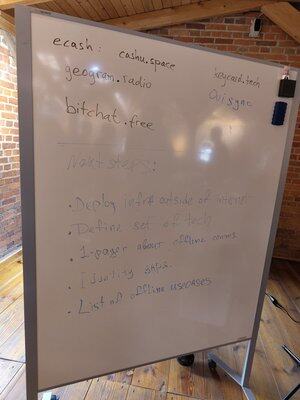 ecash: cashu.space
geogram.radio
keycard.tech
bitchat.free
next steps:
• Deploy infra outside of internet
• Define set of tech
1-pager about offline comms
• Identity gaps.
• List of offline usecases